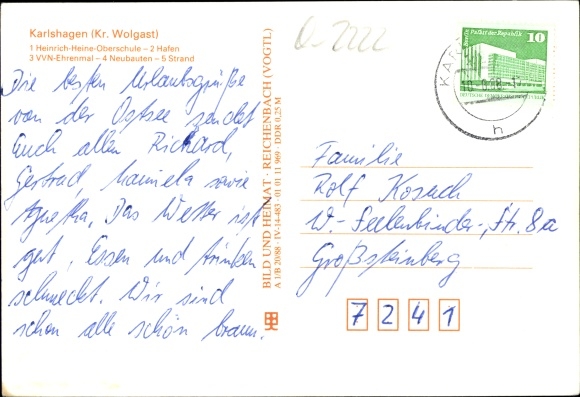 Karlshagen (Kr. Wolgast)
1 Heinrich-Heine-Oberschule – 2 Hafen
3 VVN-Ehrenmal – 4 Neubauten – 5 Strand
Die besten Urlaubsgrüße
von der Ostsee sendet
Euch allen Richard,
Gertrud, sowie
Agnetha. Das Wetter ist
gut. Essen und trinken
schmeckt. Wir sind
schon alle schön braun.
BILD UND HEIMAT · REICHENBACH (VOGTL)
A 1/B 2088 · IV-14-483 · 01 01 11 969 · DDR 0,25 M
Berlin Palast der Republik
10
h
Familie
Rolf Kosuch
W.-Seelenbinder-Str. 8a
Großsteinberg
7241